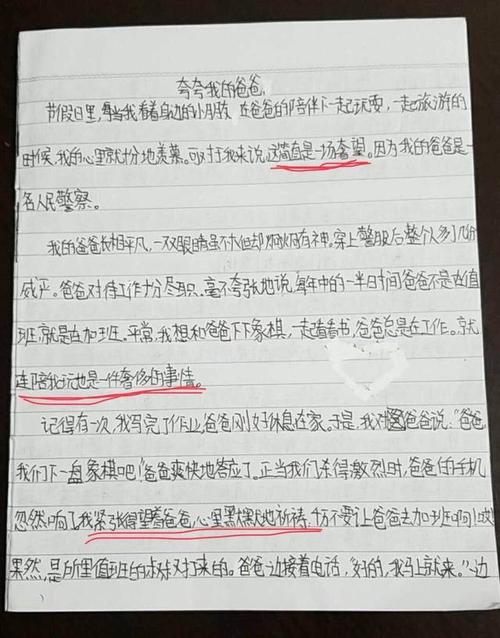 夸夸我的爸爸
节假日里,每当我看着身边的小朋友 在爸爸的陪伴下一起玩耍,一起旅游的
时候,我的心里就十分地羡慕。可对于我来说,这简直是一场奢望。因为我的爸爸是一
名人民警察。
我的爸爸长相平凡,一双眼睛虽不大但却炯炯有神。穿上警服后整个人多了几份
威严。爸爸对待工作十分尽职。毫不夸张地说,每年中的一半日时间爸爸不是在值
班,就是在加班。平常,我想和爸爸下下象棋,一起看看书,爸爸总是在工作。就
连陪我玩也是一件奢侈的事情。
记得有一次,我写完了作业,爸爸刚好休息在家。于是,我对爸爸说:“爸爸,
我们下一盘象棋吧!”爸爸爽快地答应了。正当我们杀得激烈时,爸爸的手机
忽然响了,我紧张得望着爸爸,心里默默地祈祷:千万不要让爸爸去加班啊!
果然,是所里值班的叔叔打来的。爸爸边接着电话,“好的,我马上就来。”边